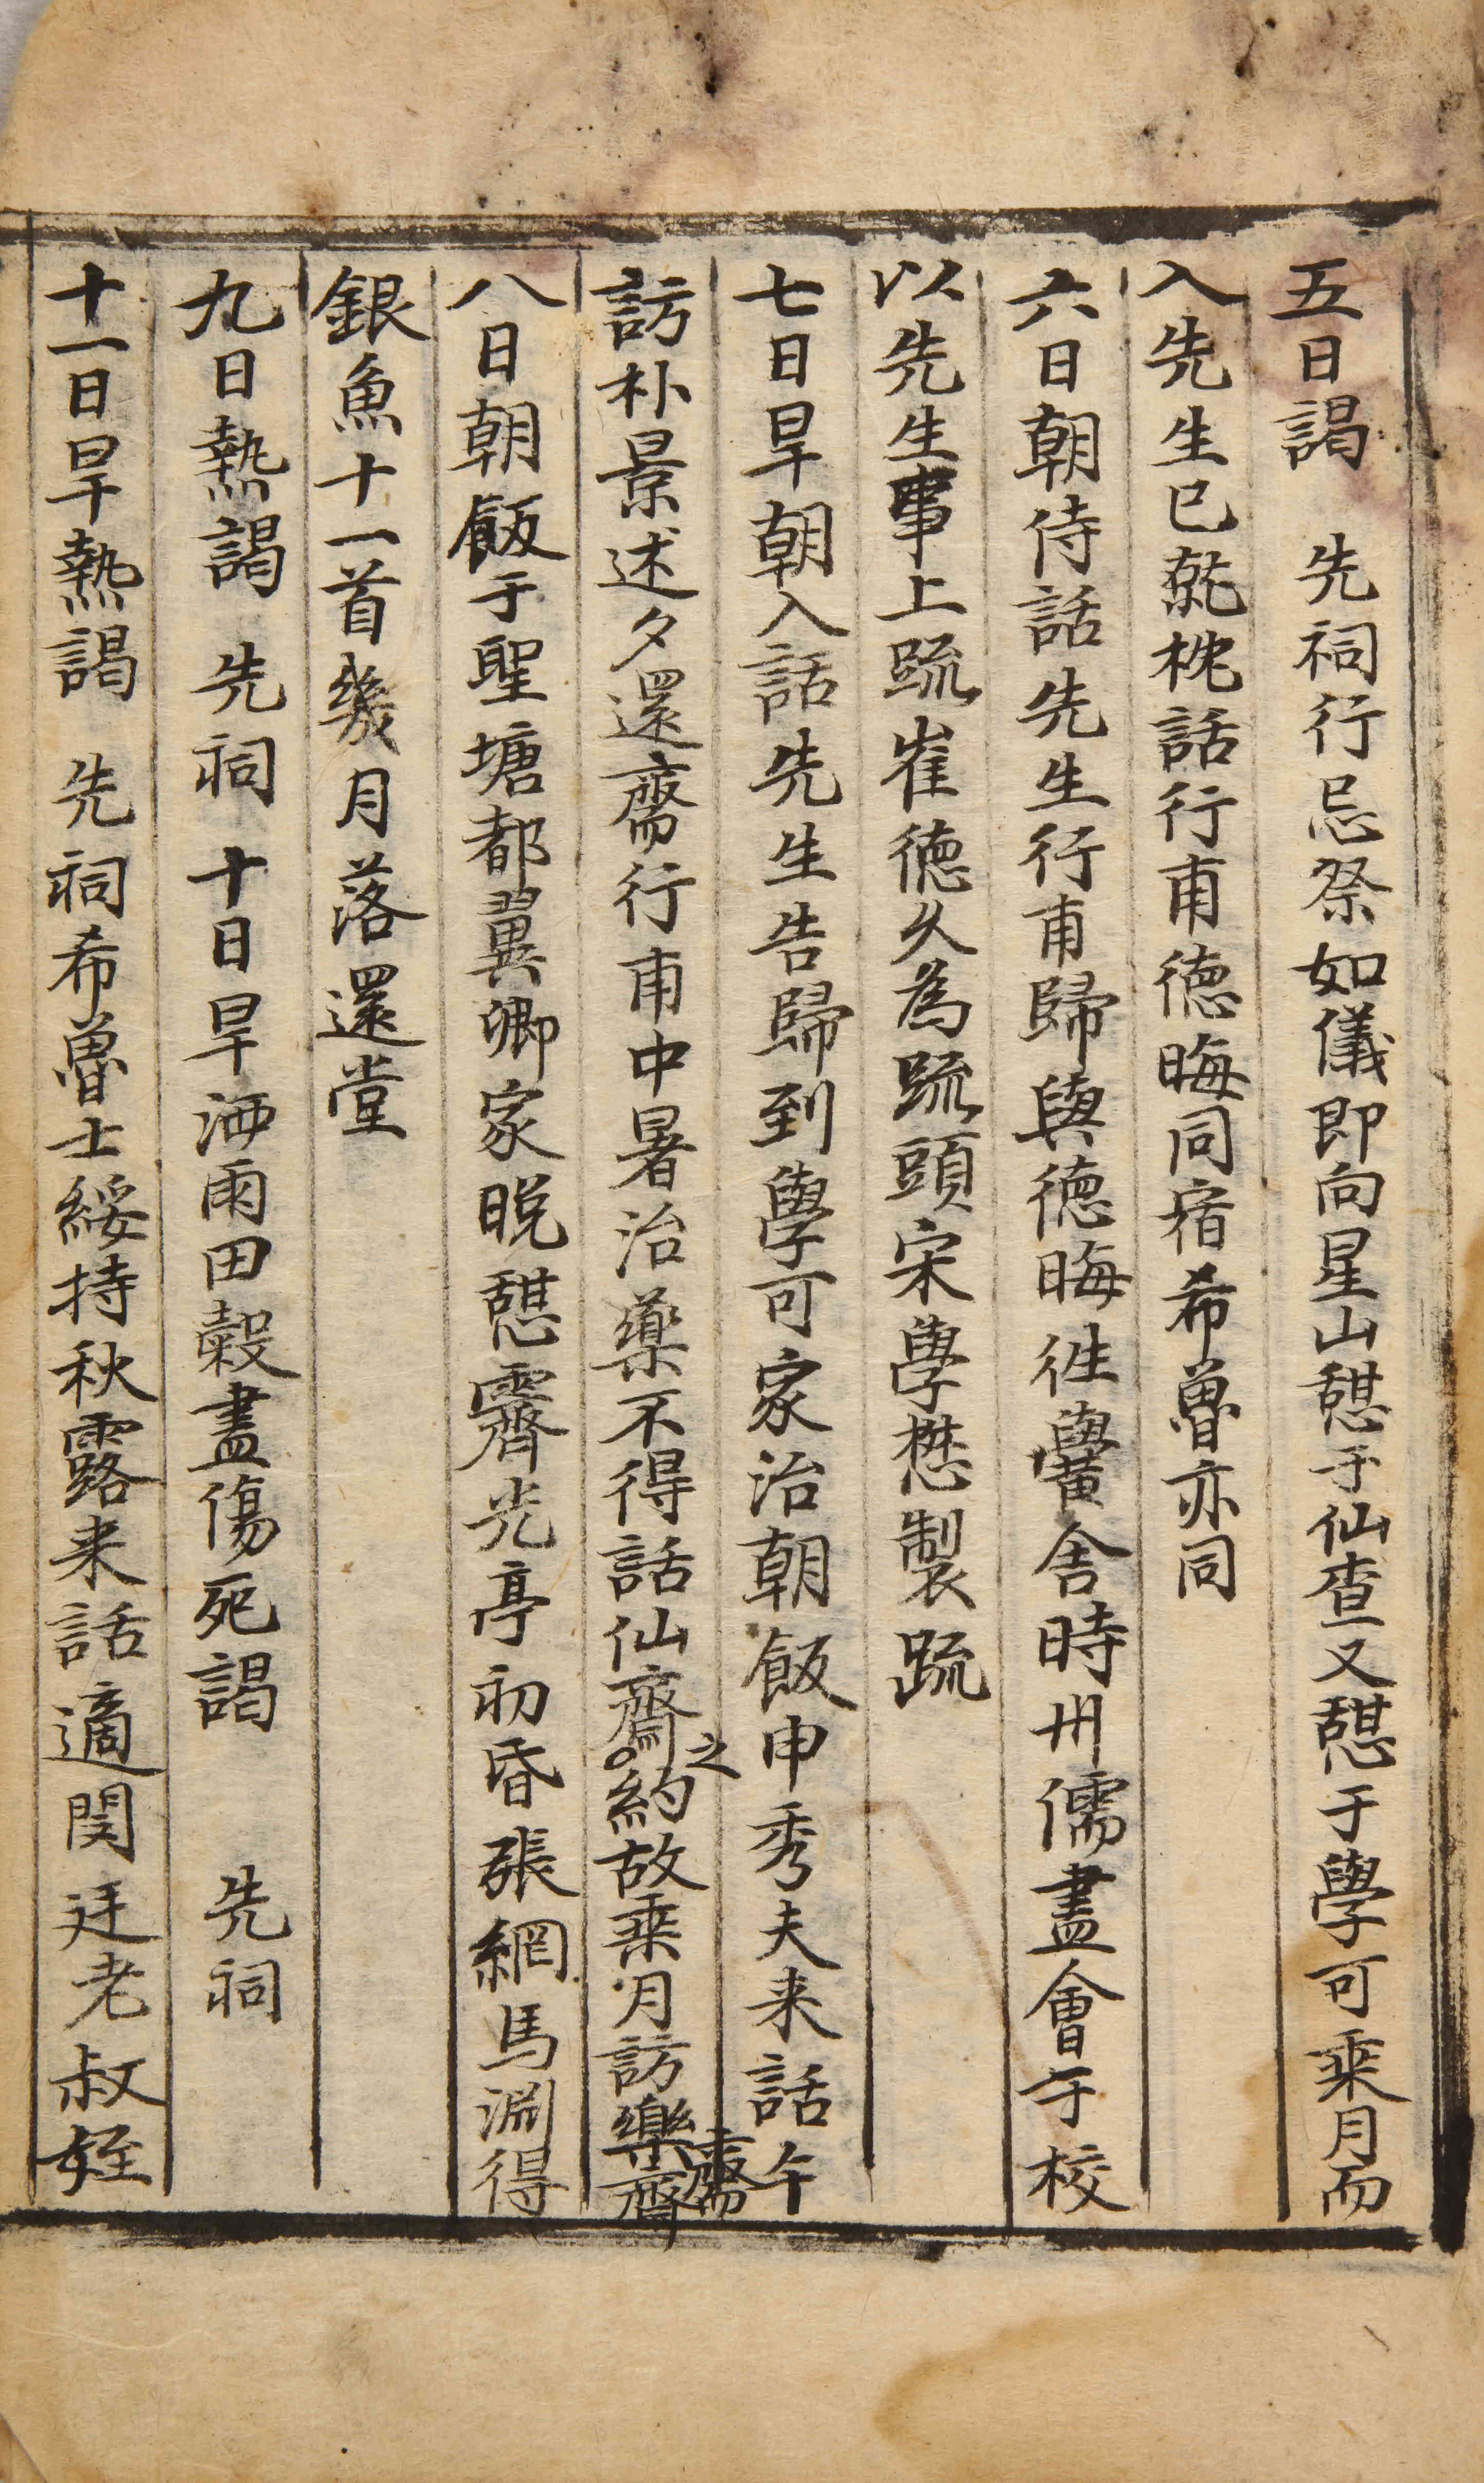 五日謁 先祠行忌祭如儀即向星山憇于仙查又憇于學可乘月而
入先生已就枕話行甫德晦同宿希魯亦同
六日朝侍話先生行甫歸與德晦往黌舍時州儒盡會于校
以先生事上疏崔德久爲疏頭宋學懋製疏
七日旱朝入話先生告歸到學可家治朝飯申秀夫来話午
訪朴景述夕還齋行甫中暑治藥不得話仙齋之約故乘月訪樂齋
八日朝飯于聖塘都翼卿家晩憇霽光亭初昏張網馬淵得
銀魚十一首幾月落還堂
九日熱謁 先祠 十日旱洒雨田穀盡傷死謁 先祠
十一日旱熱謁 先祠希魯士綏持秋露来話適閔廷老叔姪